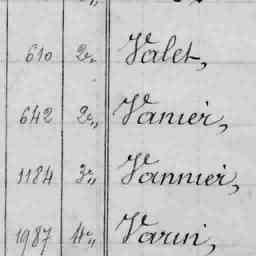 610 2〃 Valet,
642 2〃 Vanier,
1184 3〃 Vannier,
1987 4〃 Varin,